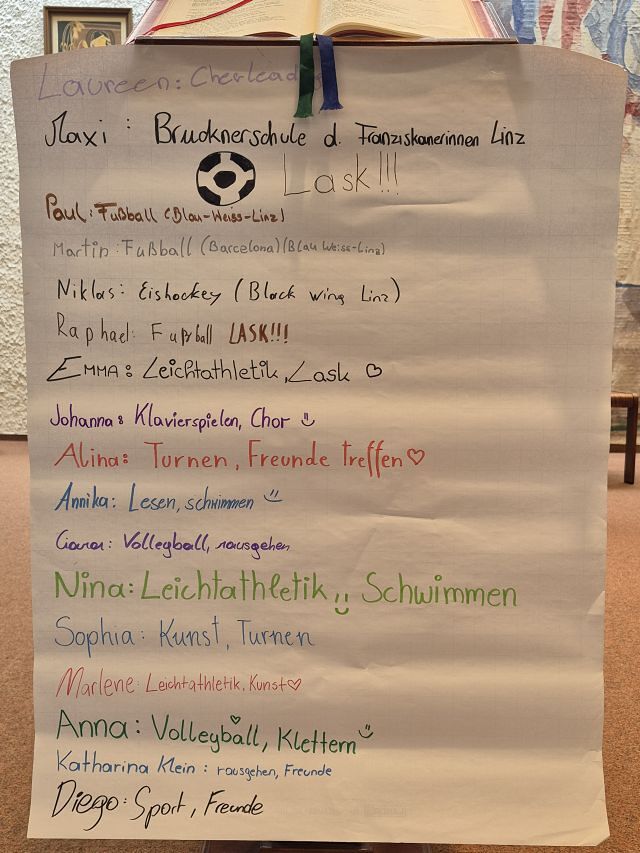 Laureen: Cheerlead
Maxi: Brucknerschule d. Franziskanerinnen Linz
Lask!!!
Paul: Fußball (Blau-Weiss-Linz)
Martin: Fußball (Barcelona) (Blau Weiss-Linz)
Niklas: Eishockey (Black wing Linz)
Raphael: Fußball LASK!!!
EMMA: Leichtathletik, Lask ♡
Johanna: Klavierspielen, Chor
Alina: Turnen, Freunde treffen ♡
Annika: Lesen, schwimmen
Volleyball, rausgehen
Nina: Leichtathletik, Schwimmen
Sophia: Kunst, Turnen
Marlene: Leichtathletik, Kunst ♡
Anna: Volleyball, Klettern
Katharina Klein: rausgehen, Freunde
Diego: Sport, Freunde